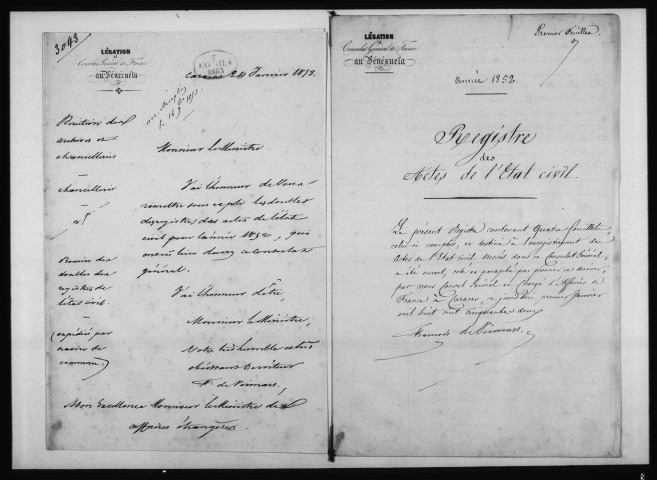 3043
LÉGATION
et
Consulat Général de France
au Vénézuela
7
AVRIL
1853
Caracas 24 Janvier 1853.
Direction des
archives et
chancelleries
—
chancellerie
—
n°
Remise des
doubles des
registres de
l'état civil.
—
(expédié par
navire de
commerce.)
Monsieur le Ministre
J'ai l'honneur de Vous
remettre sous ce pli les doubles
des registres des actes de l'état
civil pour l'année 1852, qui
ont eu lieu dans ce Consulat
général.
J'ai l'honneur d'être,
Monsieur le Ministre,
Votre très humble et très
obéissant Serviteur
Son Excellence Monsieur le Ministre des
affaires étrangères
LÉGATION
et
Consulat Général de France
au Vénézuela
Premier feuillet
année 1852.
Registre
des
Actes de l'État civil.
Le présent Registre contenant Quatre feuillets,
celui-ci compris, et destiné à l'enregistrement des
Actes de l'État civil dressés dans ce Consulat Général,
a été ouvert, coté et paraphé par premier et dernier,
par nous Consul Général et Chargé d'Affaires de
France à Caracas, aujourd'hui premier Janvier
mil huit cent cinquante deux